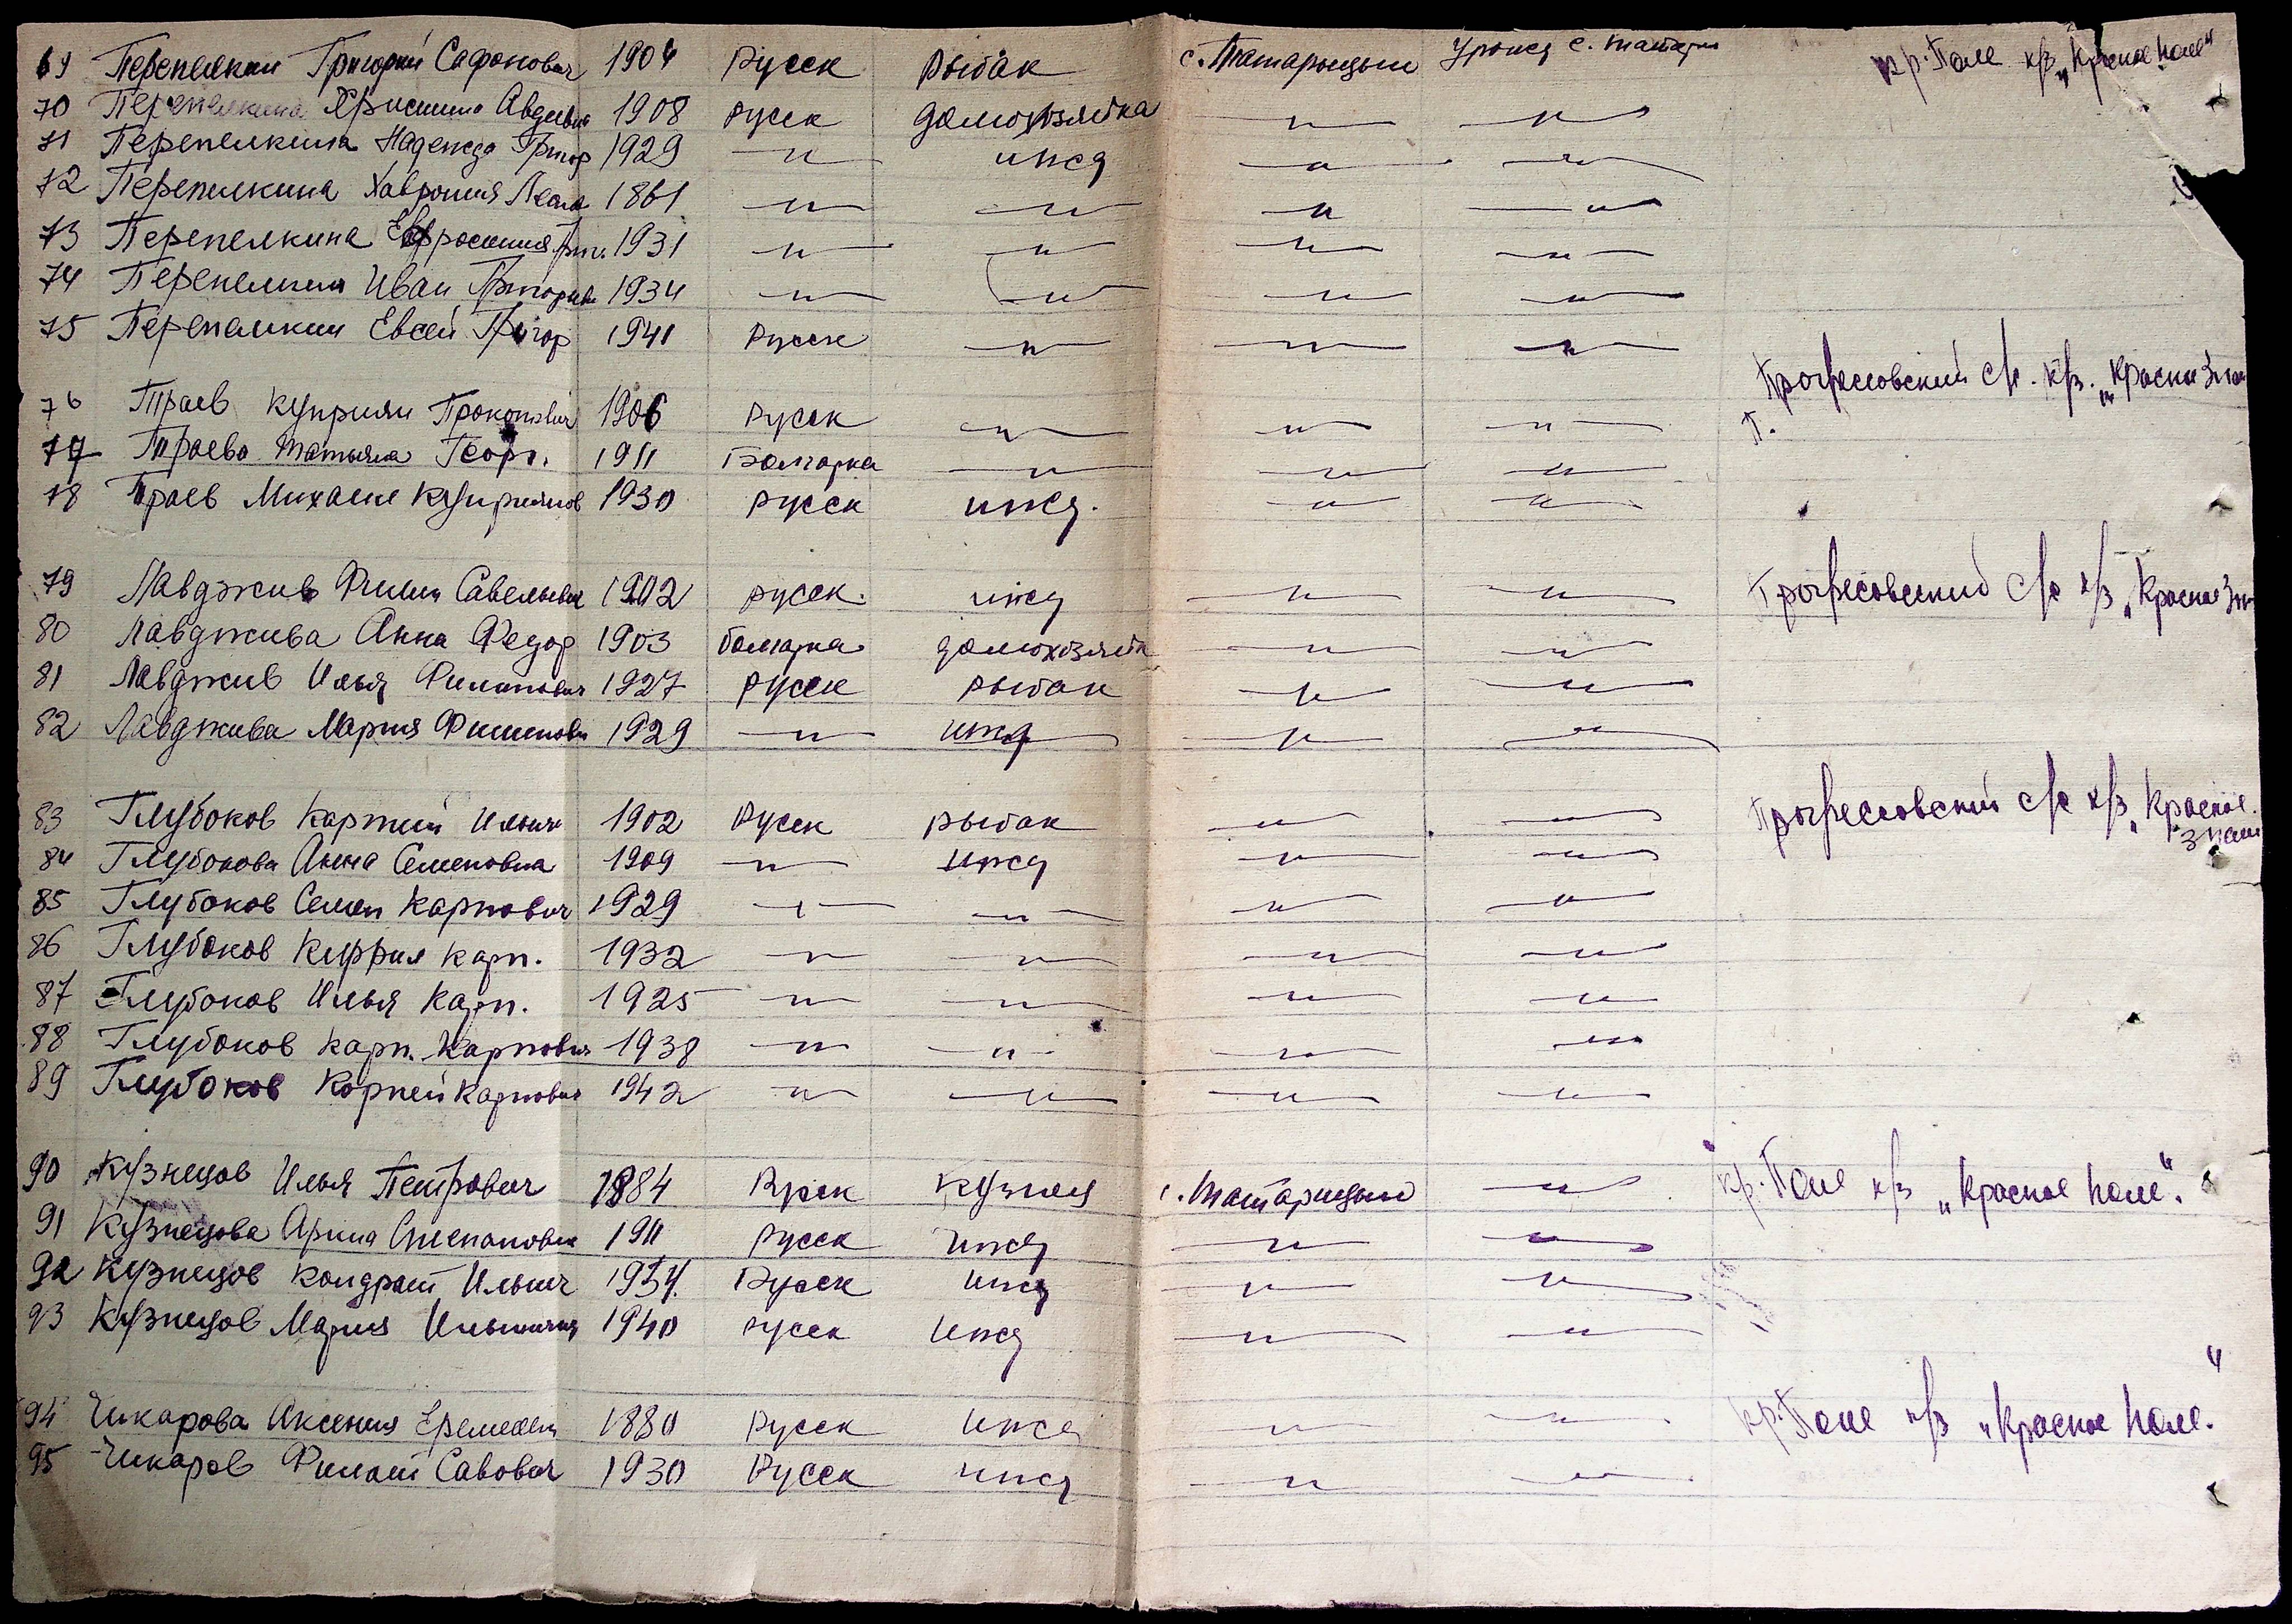 69 Перепелкин Григорий Сафонович 1904 Русск рыбак с. Татарицыи Уроцея с. Татари кр. Поле к/з „Красное поле"
70 Перепелкина Христина Авдеевна 1908 русск домохозяйка —〃— —〃—
71 Перепелкина Надежда Григор 1929 —〃— ижд —〃— —〃—
72 Перепелкина Хаврония Леон 1861 —〃— —〃— —〃— —〃—
73 Перепелкина Евфросиния Гри. 1931 —〃— —〃— —〃— —〃—
74 Перепелкин Иван Григорьев 1934 —〃— —〃— —〃— —〃—
75 Перепелкин Евсей Григор 1941 Русск —〃— —〃— —〃—
76 Траев Куприян Прокопович 1906 Русск —〃— —〃— —〃— Прогрессовский с/с. к/з. „Красное Знам
77 Траева Татьяна Георг. 1911 Болгарка —〃— —〃— —〃—
78 Траев Михаил Куприянов 1930 русск ижд. —〃— —〃—
79 Лавджив Филип Савельевич 1902 русск. ижд —〃— —〃— Прогресовский с/с к/з „Красное Зн
80 Лавджива Анна Федор 1903 болгарка домохозяйк —〃— —〃—
81 Лавджив Илья Филипович 1927 русск рыбак —〃— —〃—
82 Лавджива Мария Филипов 1929 —〃— ижд —〃— —〃—
83 Глубоков Карпий Ильич 1902 Русск рыбак —〃— —〃— Прогрессовский с/с к/з „Красное
Знам
84 Глубокова Анна Семеновна 1909 —〃— ижд —〃— —〃—
85 Глубоков Семен Карпович 1929 —〃— —〃— —〃— —〃—
86 Глубоков Киррил Карп. 1932 —〃— —〃— —〃— —〃—
87 Глубоков Илья Карп. 1925 —〃— —〃— —〃— —〃—
88 Глубоков Карп. Карпович 1938 —〃— —〃— —〃— —〃—
89 Глубоков Корней Карпович 1942 —〃— —〃— —〃— —〃—
90 Кузнецов Илья Петрович 1884 Русск Кузнец с. Татарицыи —〃— кр. Поле к/з „Красное Поле".
91 Кузнецова Арина Степановн 1911 Русск ижд —〃— —〃—
92 Кузнецов Кондрат Ильич 1934. Русск ижд —〃— —〃—
93 Кузнецов Мария Ильинична 1940 русск ижд —〃— —〃—
94 Чикарова Аксения Еремеевн 1880 Русск ижд —〃— —〃— кр. Поле к/з „Красное Поле."
95 Чикаров Филат Савович 1930 Русск ижд —〃— —〃—